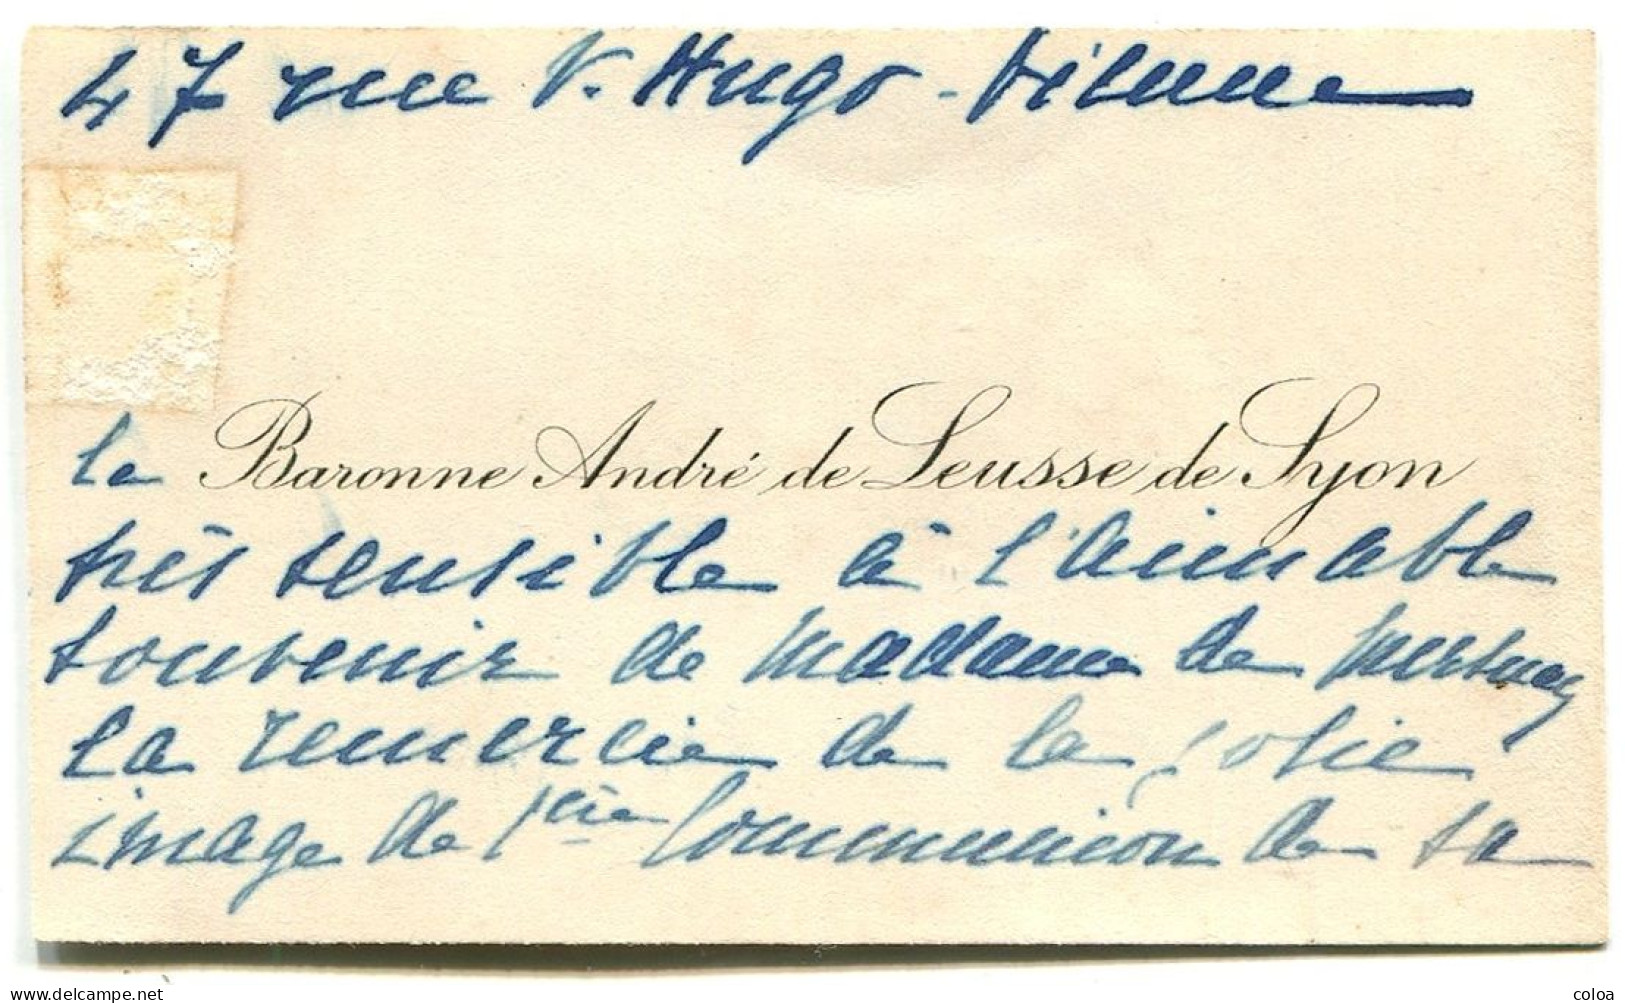 47 rue V. Hugo - Vienne
la Baronne André de Leusse de Syon
très sensible à l'aimable
souvenir de Madame de
la remercie de la jolie
image de 1ère Communion de sa
www.delcampe.net
coloa